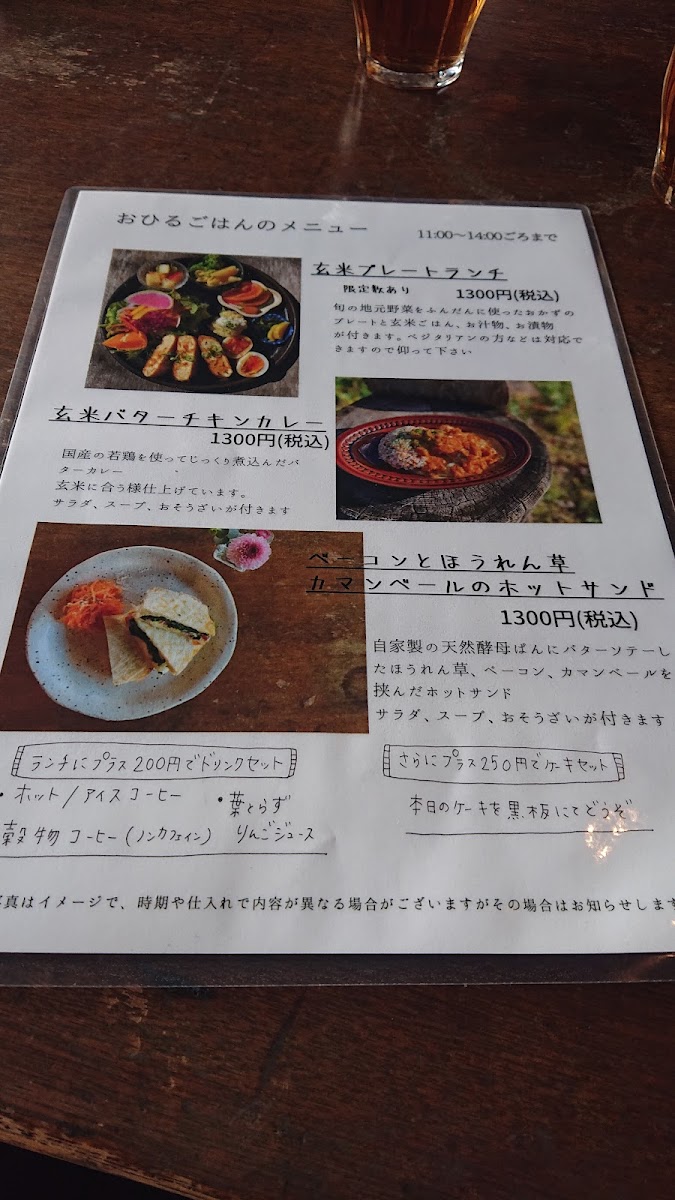 おひるごはんのメニュー 11:00〜14:00ごろまで
玄米プレートランチ
限定数あり 1300円(税込)
旬の地元野菜をふんだんに使ったおかずの
プレートと玄米ごはん、お汁物、お漬物
が付きます。ベジタリアンの方などは対応で
きますので仰って下さい
玄米バターチキンカレー
1300円(税込)
国産の若鶏を使ってじっくり煮込んだバ
ターカレー
玄米に合う様仕上げています。
サラダ、スープ、おそうざいが付きます
ベーコンとほうれん草
カマンベールのホットサンド
1300円(税込)
自家製の天然酵母ぱんにバターソテーし
たほうれん草、ベーコン、カマンベールを
挟んだホットサンド
サラダ、スープ、おそうざいが付きます
ランチにプラス200円でドリンクセット
・ホット/アイスコーヒー
・葉とらず
りんごジュース
穀物コーヒー(ノンカフェイン)
さらにプラス250円でケーキセット
本日のケーキを黒板にてどうぞ
写真はイメージで、時期や仕入れで内容が異なる場合がございますがその場合はお知らせします